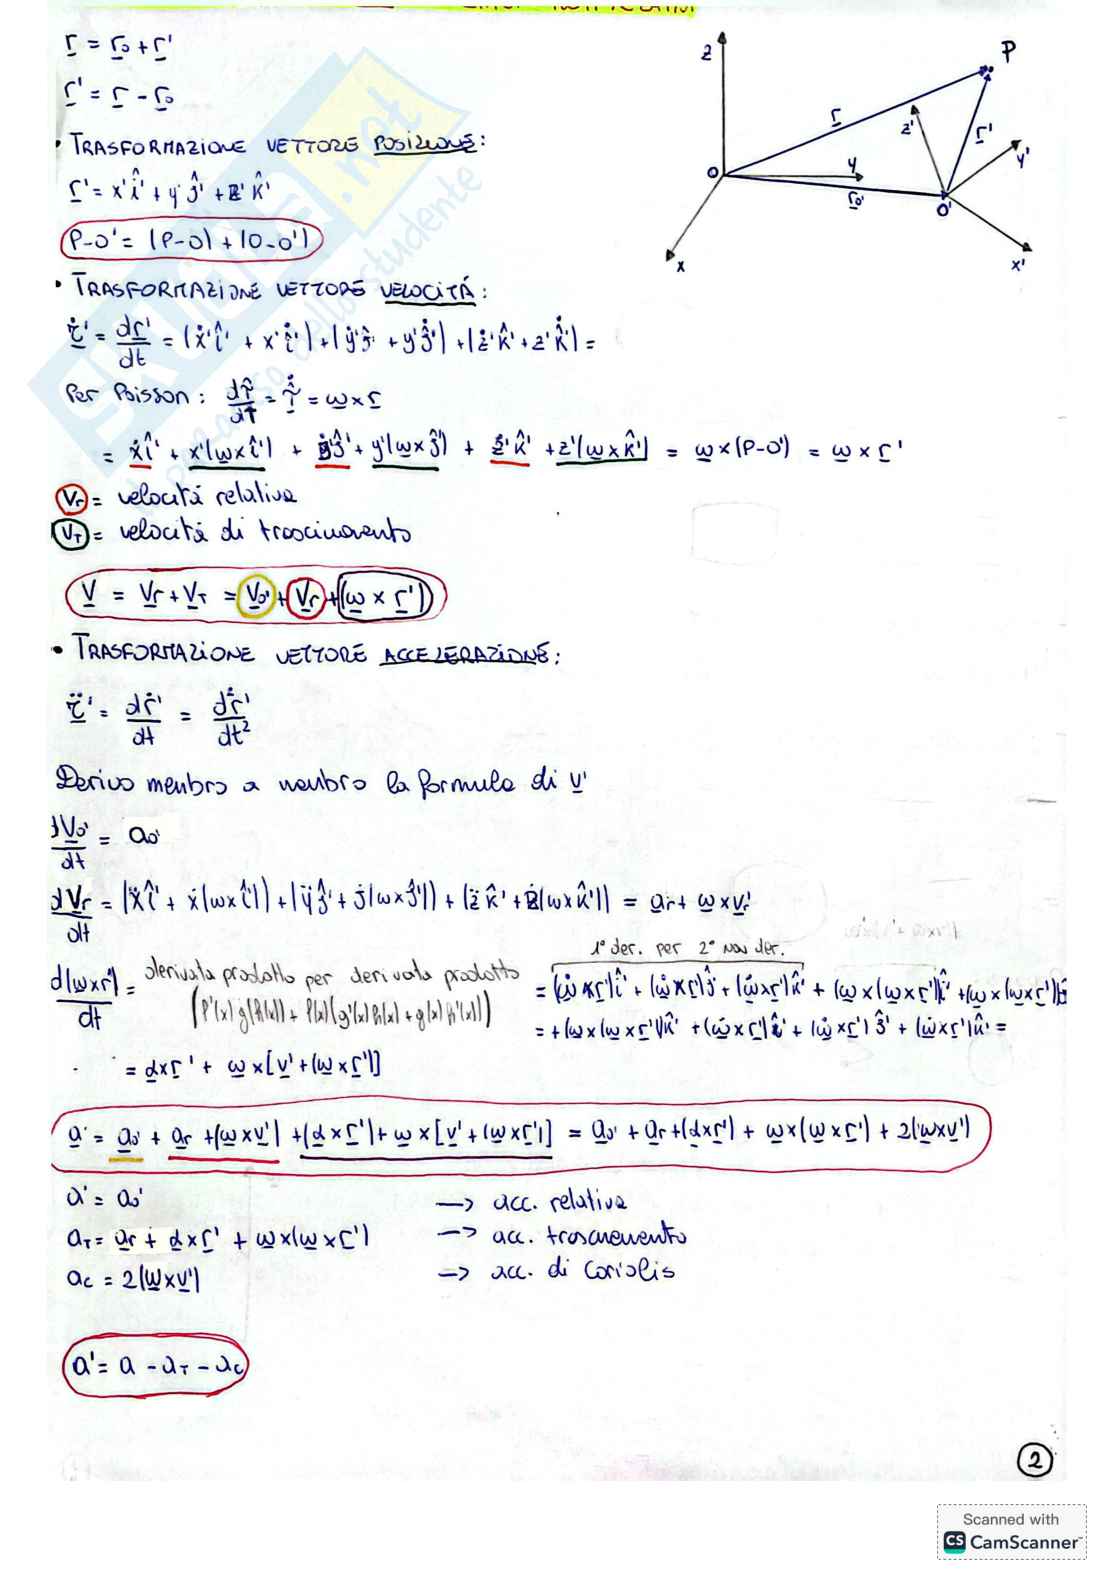 r = r₀ + r'
r' = r - r₀
• TRASFORMAZIONE VETTORE POSIZIONE:
r' = x'î' + y'ĵ' + z'k̂'
P-O' = (P-O) + (O-O')
• TRASFORMAZIONE VETTORE VELOCITÁ:
ṙ' = dr'/dt = (ẋ'î' + x'î̇') + (ẏ'ĵ' + y'ĵ̇') + (ż'k̂' + z'k̂̇') =
Per Poisson: dr̂/dt = r̂̇ = ω×r
= ẋî' + x'(ω×î') + ẏĵ' + y'(ω×ĵ') + ż'k̂' + z'(ω×k̂') = ω×(P-O') = ω×r'
Vr = velocitá relativa
VT = velocitá di trascinamento
V = Vr + VT = Vo' + Vr + (ω × r')
• TRASFORMAZIONE VETTORE ACCELERAZIONE:
r̈' = dṙ'/dt = d²r'/dt²
Derivo membro a membro la formula di V'
dVo'/dt = ao'
dVr/dt = (ẍî' + ẋ(ω×î')) + (ÿĵ' + ẏ(ω×ĵ')) + (z̈k̂' + ż(ω×k̂')) = ar + ω×Vr'
1° der. per 2° non der.
d(ω×r')/dt = derivata prodotto per derivata prodotto = (ω̇×r')î' + (ω̇×r')ĵ' + (ω̇×r')k̂' + (ω×(ω×r'))î' + (ω×(ω×r'))ĵ'
(f'(x) g(h(x)) + f(x)(g'(x) h(x) + g(x) h'(x))) = +(ω×(ω×r'))k̂' + (ω̇×r')î' + (ω̇×r')ĵ' + (ω̇×r')k̂' =
= α×r' + ω×[v' + (ω×r')]
a' = ao' + ar + (ω×v') + (α×r') + ω×[v' + (ω×r')] = ao' + ar + (α×r') + ω×(ω×r') + 2(ω×v')
a' = ao' → acc. relativa
aT = ar + α×r' + ω×(ω×r') → acc. trascinamento
ac = 2(ω×v') → acc. di Coriolis
a' = a - aT - ac
z
P
r
z'
r'
y'
O
y
ro'
O'
x
x'
2
SKUOLA.net
Scanned with
CS CamScanner™